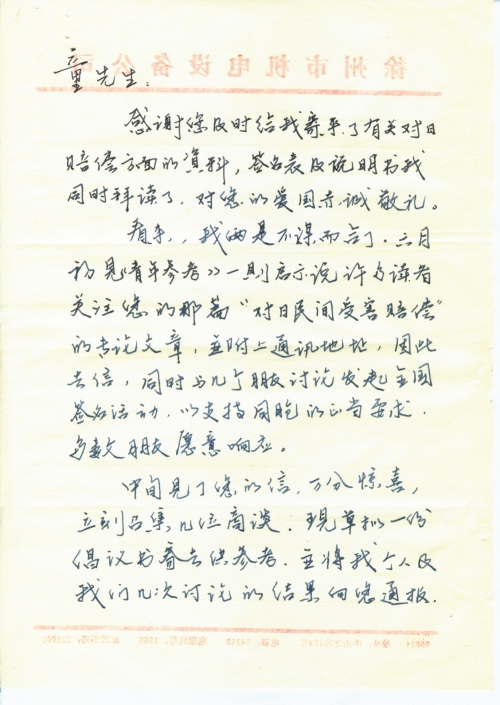 徐州市机电设备公司
童先生：
感谢您及时给我寄来了有关对日
赔偿方面的资料，签名表及说明书我
同时拜读了，对您的爱国赤诚敬礼。
看来，我俩是不谋而合了．六月
初见《青年参考》一则启示说许多读者
关注您的那篇“对日民间受害赔偿”
的专论文章，並附上通讯地址，因此
去信，同时与几个朋友讨论发起全国
签名活动．以支持同胞的正当要求．
多数朋友愿意响应。
中旬见了您的信，万分惊喜，
立刻召集几位商谈．现草拟一份
倡议书寄去供参考．主将我个人及
我们几次讨论的结果向您通报．